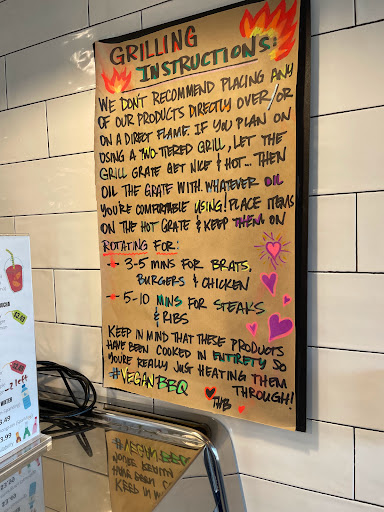 GRILLING
INSTRUCTIONS:
WE DON'T RECOMMEND PLACING ANY
OF OUR PRODUCTS DIRECTLY OVER/OR
ON A DIRECT FLAME. IF YOU PLAN ON
USING A TWO-TIERED GRILL, LET THE
GRILL GRATE GET NICE & HOT... THEN
OIL THE GRATE WITH WHATEVER OIL
YOU'RE COMFORTABLE USING! PLACE ITEMS
ON THE HOT GRATE & KEEP THEM ON
ROTATING FOR:
3-5 MINS FOR BRATS,
BURGERS & CHICKEN
5-10 MINS FOR STEAKS
& RIBS
KEEP IN MIND THAT THESE PRODUCTS
HAVE BEEN COOKED IN ENTIRETY SO
YOU'RE REALLY JUST HEATING THEM
#VEGANBBQ THROUGH!
THB
2 left
WATER
3.49
3.99
#VEGANBBQ